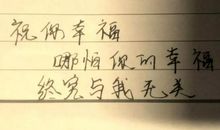 祝你幸福
哪怕你的幸福
终究与我无关